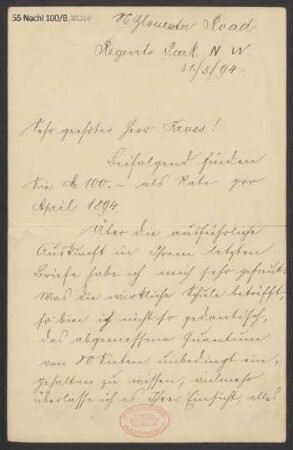 55 Nachl 100/B,
86 Gloucester Road
Regents Park N. W.
31./3./94.
Sehr geehrter Herr Kroes!
Beifolgend finden
Sie M 100.— als Rate pro
April 1894.
Über die ausführliche
Auskunft in Ihrem letzten
Briefe habe ich mich sehr gefreut.
Was die wirkliche Schule betrifft,
so bin ich nicht so pedantisch,
das abgemessene Quantum
von 80 Seiten unbedingt ein-
gehalten zu wissen, vielmehr
überlasse ich es Ihrer Einsicht, alles